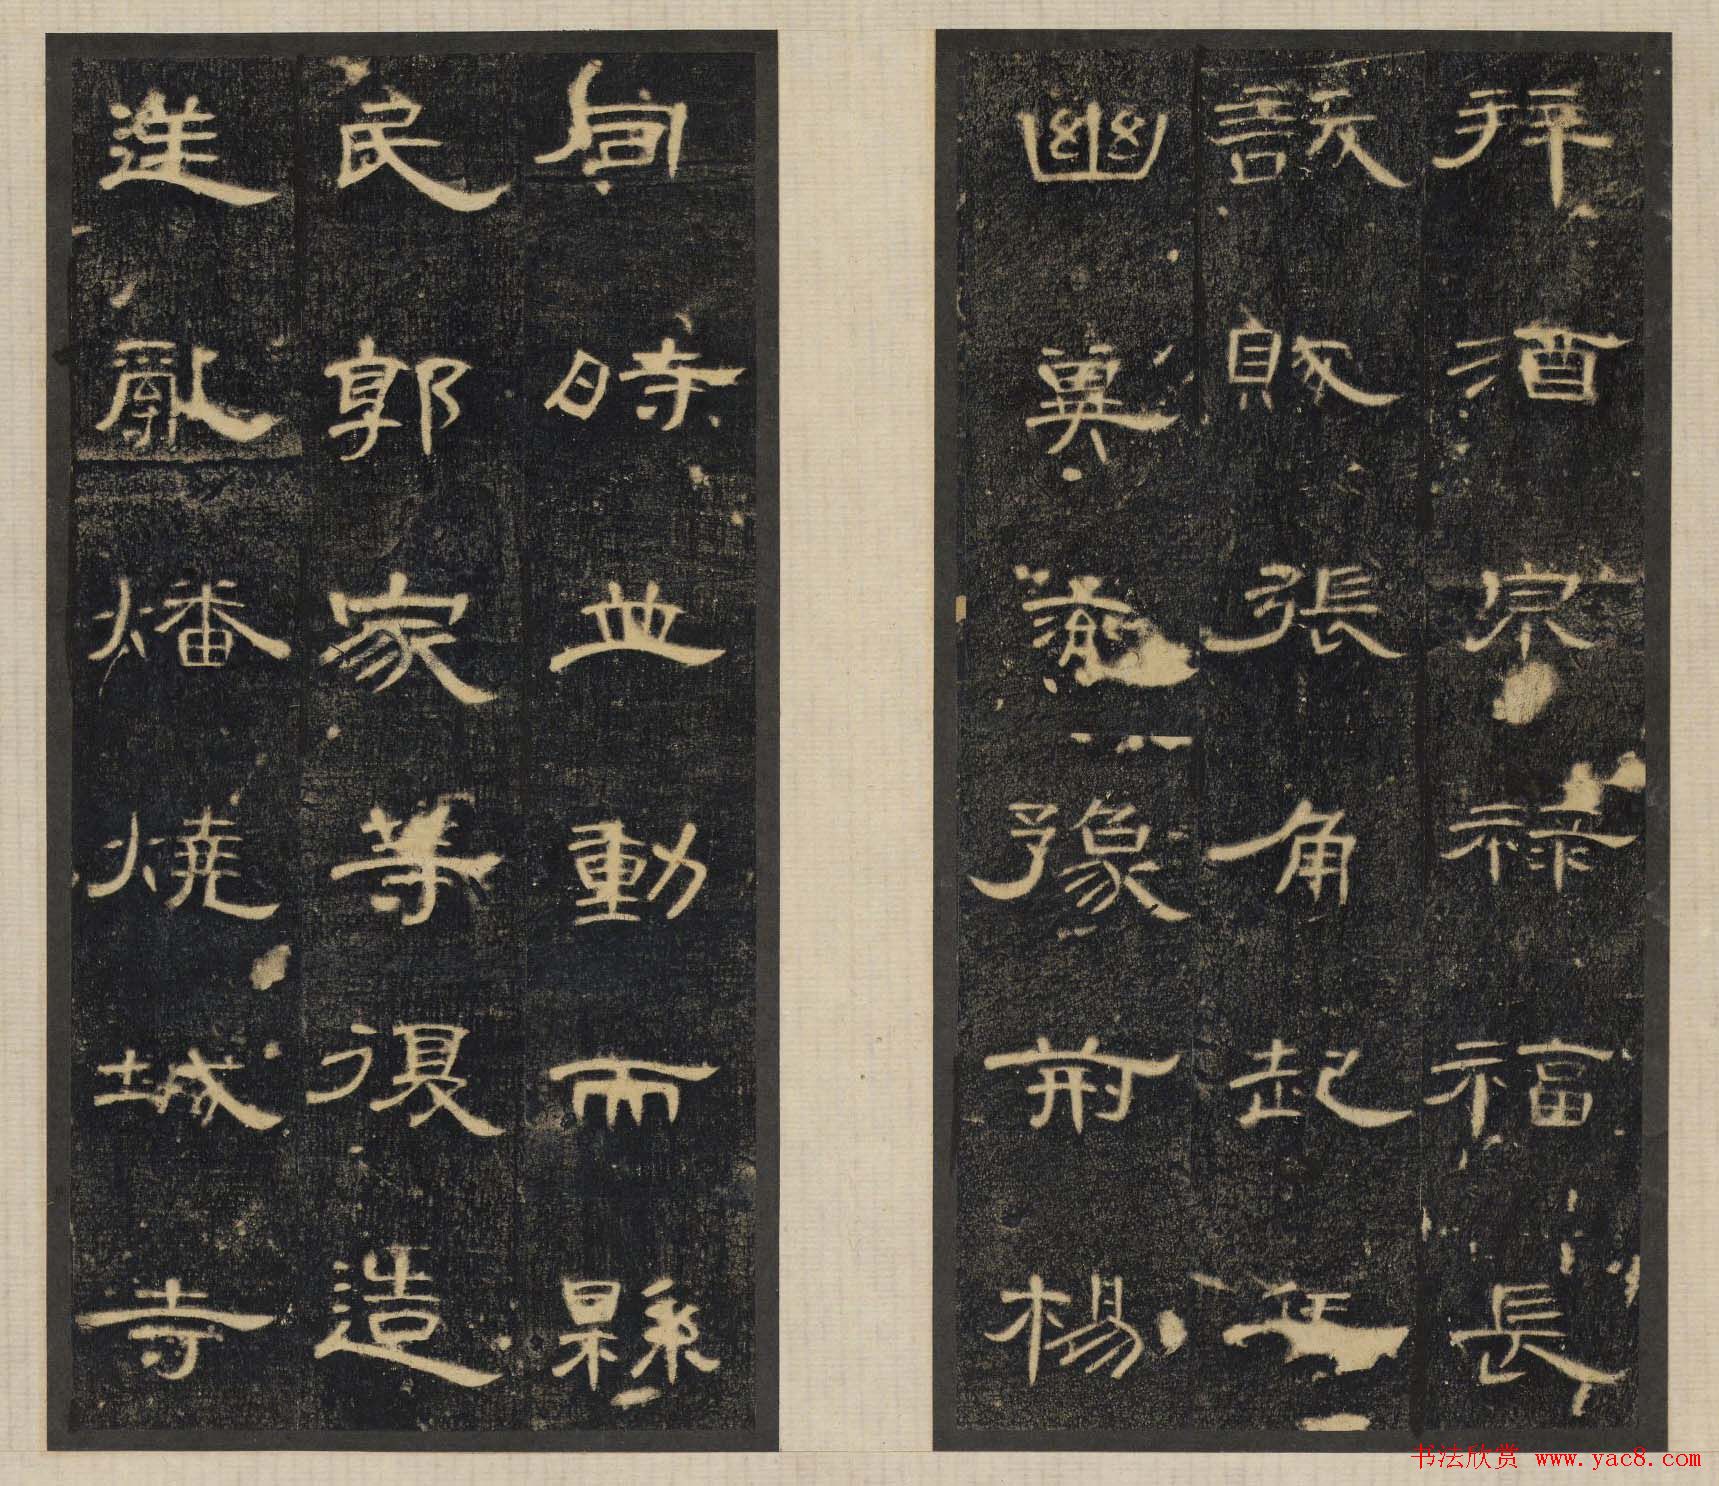 拜酒泉祿福長
訞賊張角起兵
幽冀兗豫荊楊
同時並動而縣
民郭家等復造
逆亂燔燒城寺
书法欣赏 www.yac8.com